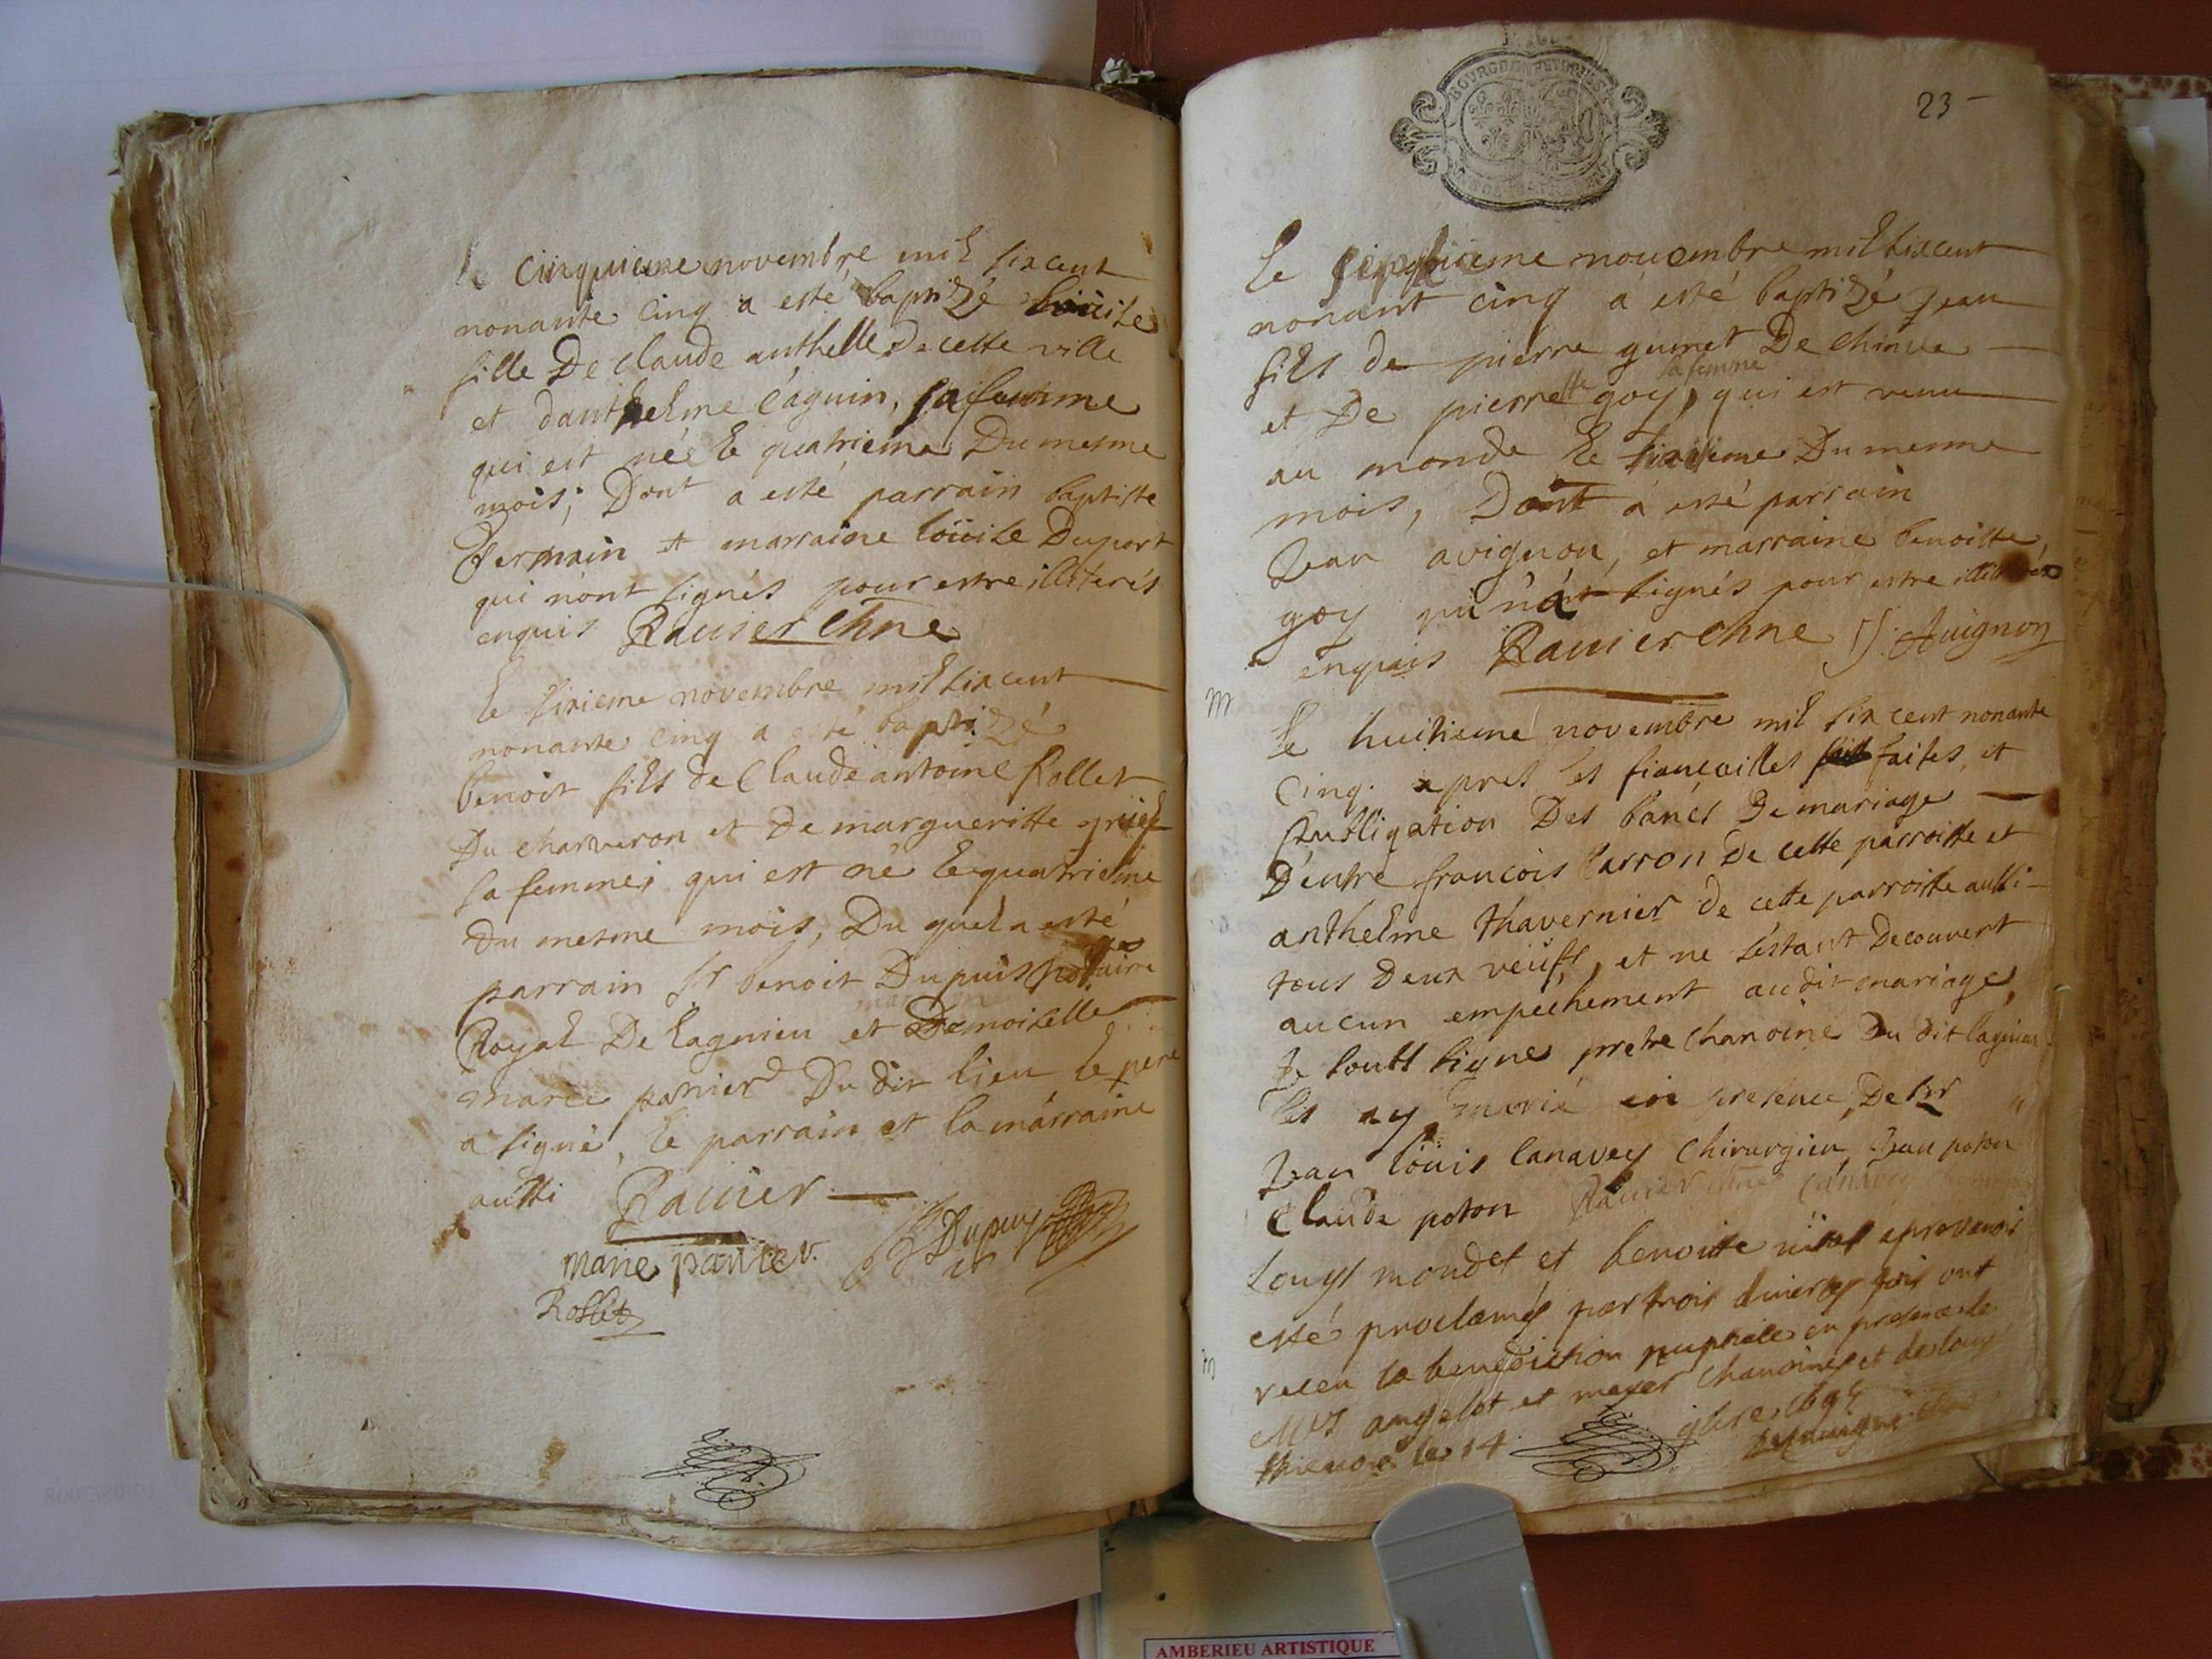 le cinquieme novembre mil six cent
nonante cinq a esté baptizé loüise
fille De claude anthelle De cette ville
et danthelme Caguin, sa femme
qui est née le quatrieme Du mesme
mois; Dont a esté parrain baptiste
Germain et marraine loüise Duport
qui n'ont signés pour estre illiterés
enquis Rauier Chne
le sixieme novembre mil six cent
nonante cinq a esté baptizé
benoit fils de Claude antoine Rollet
Du charveron et de margueritte
sa femme qui est né le quatrieme
du mesme mois, Du quel a esté
parrain Sr benoit Dupuis notaire
Royal De lagnieu et Demoiselle
marraine
marie panier Du dit lieu le pere
a signé, le parrain et la marraine
aussi Rauier
marie panier. Dupuy
Rollet
BOURGOGNE
23
le septieme nouembre mil six cent
nonant cinq a esté baptizé Jean
fils de pierre guinet De chinue
sa femme
et De pierrette goy, qui est venu
au monde le sixieme Du mesme
mois, Dont a esté parrain
Jean avignon, et marraine benoitte,
goy qui n'a signés pour estre illiterés
enquis Rauier Chne J. Auignon
m
le huitieme novembre mil six cent nonante
cinq. apres les fiançailles faites, et
Publigation Des bancs De mariage
D'entre francois Carron De cette parroisse et
anthelme thavernier de cette parroisse aussi
tous Deux veufs, et ne s'estant Decouvert
aucun empechement au dit mariage,
Je soubs signe pretre chanoine Du dit lagnieu
les ay marié en presence, De sr
Jean loüis Canavey Chirurgien Jean poton
Claude poton Rauier Chne Canavey
m
Louys mondet et benoitte
esté proclamés par trois diuerses fois ont
receu la benediction nuptiale en presence de
Mrs angelot et meyer chanoines et de louys
le 14
AMBERIEU ARTISTIQUE